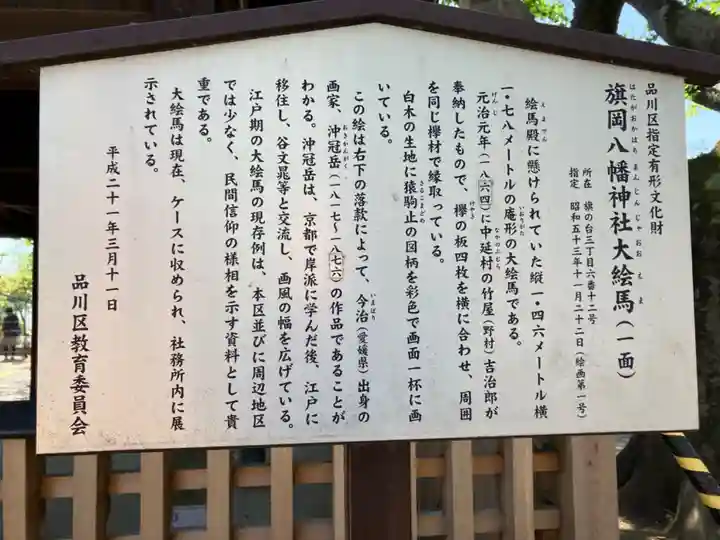 品川区指定有形文化財
旗岡八幡神社大絵馬(一面)
はたがおかはちまんじんじゃおおえま
所在 旗の台三丁目六番十二号
指定 昭和五十三年十一月二十二日(絵画第一号)
絵馬殿に懸けられていた縦一・四六メートル横
えまでん
一・七八メートルの庵形の大絵馬である。
いおりがた
元治元年(一八六四)に中延村の竹屋(野村)吉治郎が
げんじ
なかのぶむら
奉納したもので、欅の板四枚を横に合わせ、周囲
けやき
を同じ欅材で縁取っている。
白木の生地に猿駒止の図柄を彩色で画面一杯に画
さるこまどめ
いている。
この絵は右下の落款によって、今治(愛媛県)出身の
いまばり
画家、沖冠岳(一八一七~一八七六)の作品であることが
おきかんがく
わかる。沖冠岳は、京都で岸派に学んだ後、江戸に
移住し、谷文晁等と交流し、画風の幅を広げている。
江戸期の大絵馬の現存例は、本区並びに周辺地区
では少なく、民間信仰の様相を示す資料として貴
重である。
大絵馬は現在、ケースに収められ、社務所内に展
示されている。
平成二十一年三月十一日
品川区教育委員会